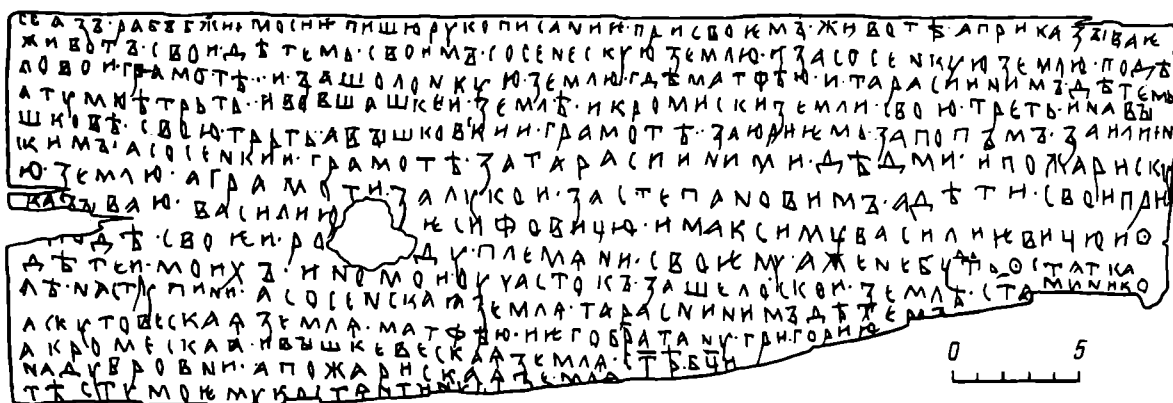 СЕАЗЪ·РАБЪБЖИ·МОСИИ·ПИШЮРУКОПИСАНИИ·ПРИСВОЕМЪ·ЖИВОТѢ·АПРИКАЗЪІВАЮ
ЖИВОТЪ·СВОИ·ДѢТЕМЬ·СВОИМЪ·СОСЕНЕСКУЮЗЕМЛЮ·ИЗАСОСЕНКУЮЗЕМЛЮ·ПОДѢ
ЛОВОИ·ГРАМОТѢ··И·ЗАШОЛОНКУЮ·ЗЕМЛЮ·ГДѢМАТФѢЮ·ИТАРАСИИНИМЪДѢТЕМЬ
АТУМЮѢТРЬТЬ·ИВОВШАШКЕИ·ЗЕМЛѢ·ИКРОМИСКИЗЕМЛИ·СВОЮ·ТРЕТЬ·ИНАВЫ
ШКОВѢ·СВОЮ·ТРЬТЬ·АВЪШКОВКИИ·ГРАМОТѢ·ЗАЮРИЕМЬ·ЗАПОПЪМЪ·ЗАИЛИИН
КИМЪ·АСОСЕНКИИ·ГРАМОТѢ·ЗАТАРАСИИНИМИ·ДѢДМИ·ИПОЖАРИСКУ
Ю·ЗЕМЛЮ·АГРАМОТИ·ЗАЛУКОИ·ЗАСТЕПАНОВИМЪ·АДѢТИ·СВОИПРИ
КАЗЪВАЮ·ВАСИЛИЮ ЕСИФОВИЦЮ·ИМАКСИМУВАСИЛИЕВИЧЮИѺ
ПОДѢ·СВОЕИ·РО ДУ·ПЛЕМАНИ·СВОЕМУ·АЖЕНЕБУДТЬѺСТАТКА
ДѢТЕИ·МОИХЪ·ИНОМОИОУЧАСТОКЪ·ЗАШЕЛОСКОИ·ЗЕМЛѢ·СТАМИНИКО
ЛѢ·НАСТУПИНИ·АСОСЕНСКАѦЗЕМЛА·ТАРАСИИНИМЪДѢТЕМЪ
АСКУТОВЕСКАѦЗЕМЛѦ·МАТФѢЮ·ИЕГОБРАТАНУ·ГРИГОРИЮ
АКРОМЕСКАѦ·ИВЫШКЕВЕСКАѦЗЕМЛѦ·СТѢБЦИ
НАДУБРОВНИ·АПОЖАРИСКАѦЗЕМЛѦ
ТѢСТУМОЕМУКОСТѦНТИНУ
0 5